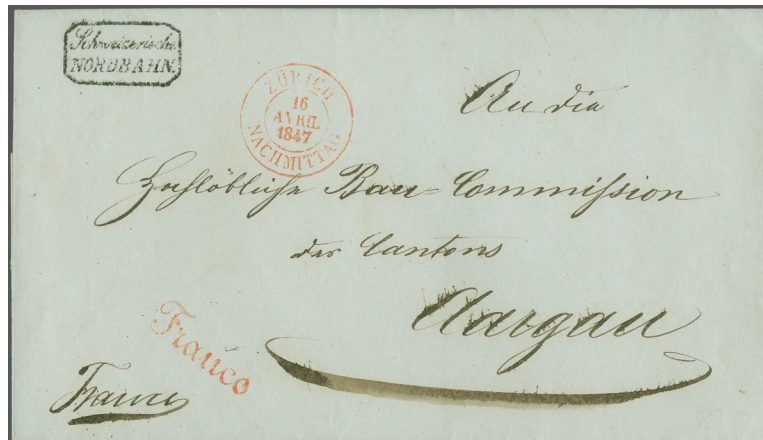 Schweizerische
NORDBAHN.
ZÜRICH
16
AVRIL
1847
NACHMITTAG
An die
Hochlöbliche Bau-Commission
des Cantons
Aargau
Franco
Franco